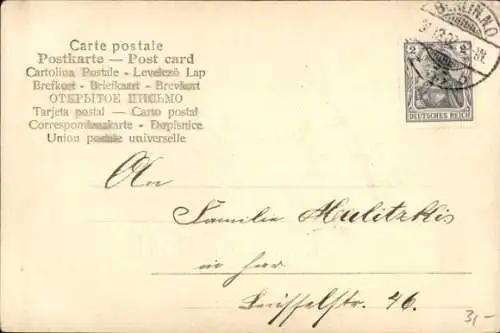 Carte postale
Postkarte — Post card
Cartolina Postale - Levelező Lap
Brefkort - Briefkaart - Brevkort
ОТКРЫТОЕ ПИСЬМО
Tarjeta postal — Carto postal
Correspondenzkarte - Dopisnice
Union postale universelle
BERLIN N.O.
31.12.
2 2
DEUTSCHES REICH
An
Familie Mulitzkis
in hier
46.
3,-